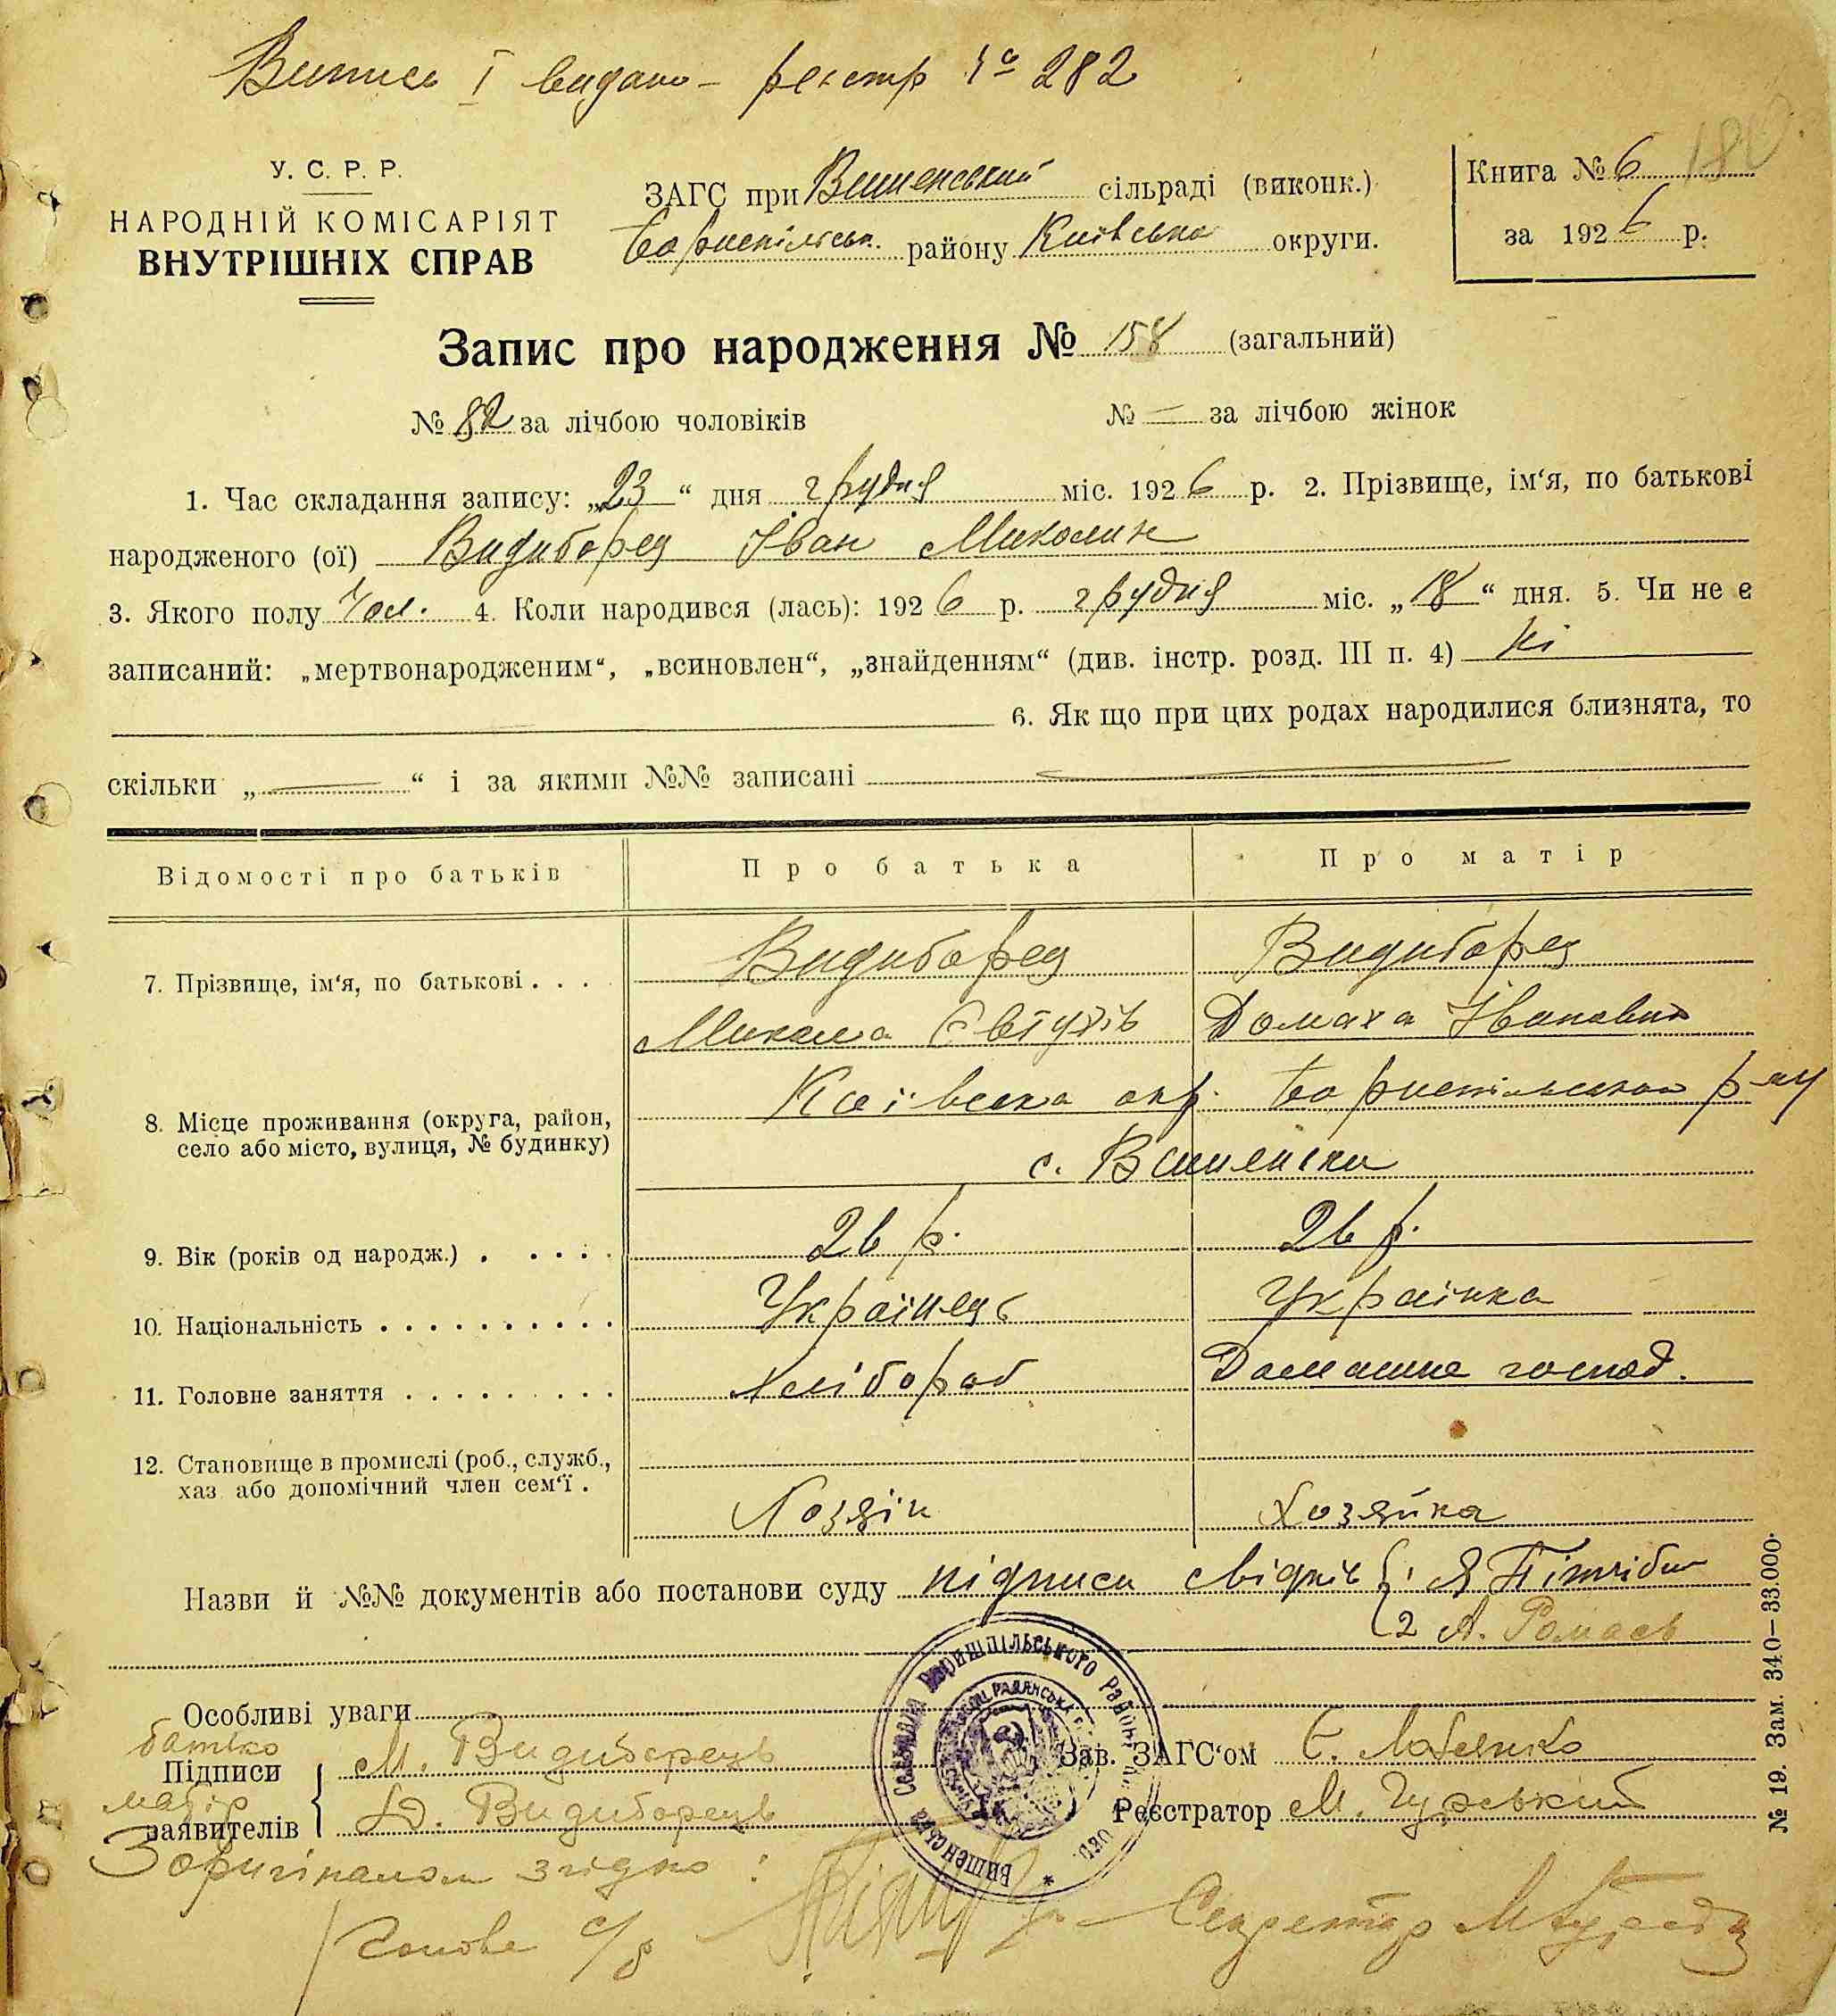 Випись I видано – реєстр № 282
У. С. Р. Р.
НАРОДНІЙ КОМІСАРІЯТ
ВНУТРІШНІХ СПРАВ
ЗАГС при Вишенський сільраді (виконк.)
Бориспільськ. району Київська округи.
Книга № 6 180
за 1926 р.
Запис про народження № 158 (загальний)
№ 82 за лічбою чоловіків № — за лічбою жінок
1. Час складання запису: „23“ дня грудня міс. 1926 р. 2. Прізвище, ім‘я, по батькові
народженого (ої) Видиборец Іван Миколин
3. Якого полу Чол. 4. Коли народився (лась): 1926 р. грудня міс. „18“ дня. 5. Чи не є
записаний: „мертвонародженим“, „всиновлен“, „знайденням“ (див. інстр. розд. III п. 4) Ні
6. Як що при цих родах народилися близнята, то
скільки „ — “ і за якими №№ записані —
Відомості про батьків Про батька Про матір
7. Прізвище, ім‘я, по батькові . . . Видиборец Видиборец
Микола Домаха Івановна
8. Місце проживання (округа, район, Київська окр. Бориспільського р-ну
село або місто, вулиця, № будинку) с. Вишеньки
9. Вік (років од народж.) . . . . . 26 р. 26 р.
10. Національність . . . . . . . . . . Українець Українка
11. Головне заняття . . . . . . . . . Хлібороб Домашне господ.
12. Становище в промислі (роб., служб.,
хаз або допомічний член сем‘ї . Хозяін Хозяйка
Назви й №№ документів або постанови суду підписи свідків 1 Я
2 А.
Особливі уваги
батько
Підписи М. Видиборець Зав. ЗАГС‘ом Є.
матір
заявителів Д. Видиборець Реєстратор М.
Вишенська Сільрада Бориспільського району
З оригіналом згідно:
Голова с/р Секретар
№ 19. Зам. 340—33.000.